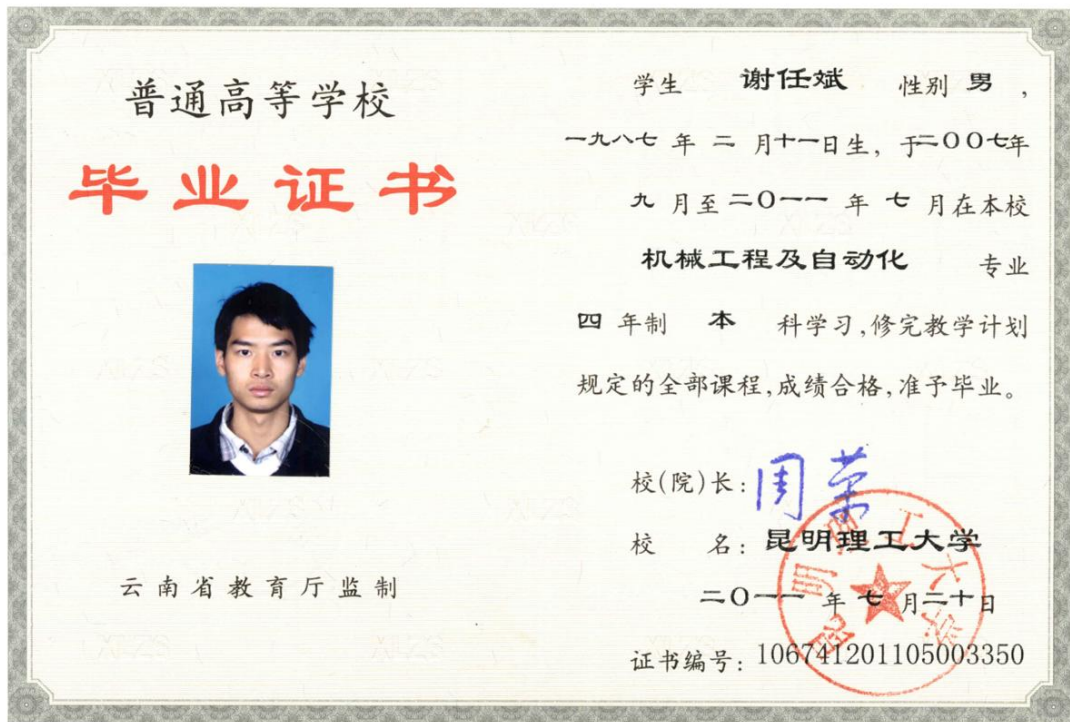 普通高等学校
毕业证书
云南省教育厅监制
学生 谢任斌 性别 男 ,
一九八七 年 二 月十一日生, 于二〇〇七年
九 月至二〇一一 年 七 月在本校
机械工程及自动化 专业
四 年制 本 科学习,修完教学计划
规定的全部课程,成绩合格,准予毕业。
校(院)长: 周荣
校 名: 昆明理工大学
二〇一一 年 七 月二十日
证书编号: 106741201105003350
昆明理工大学